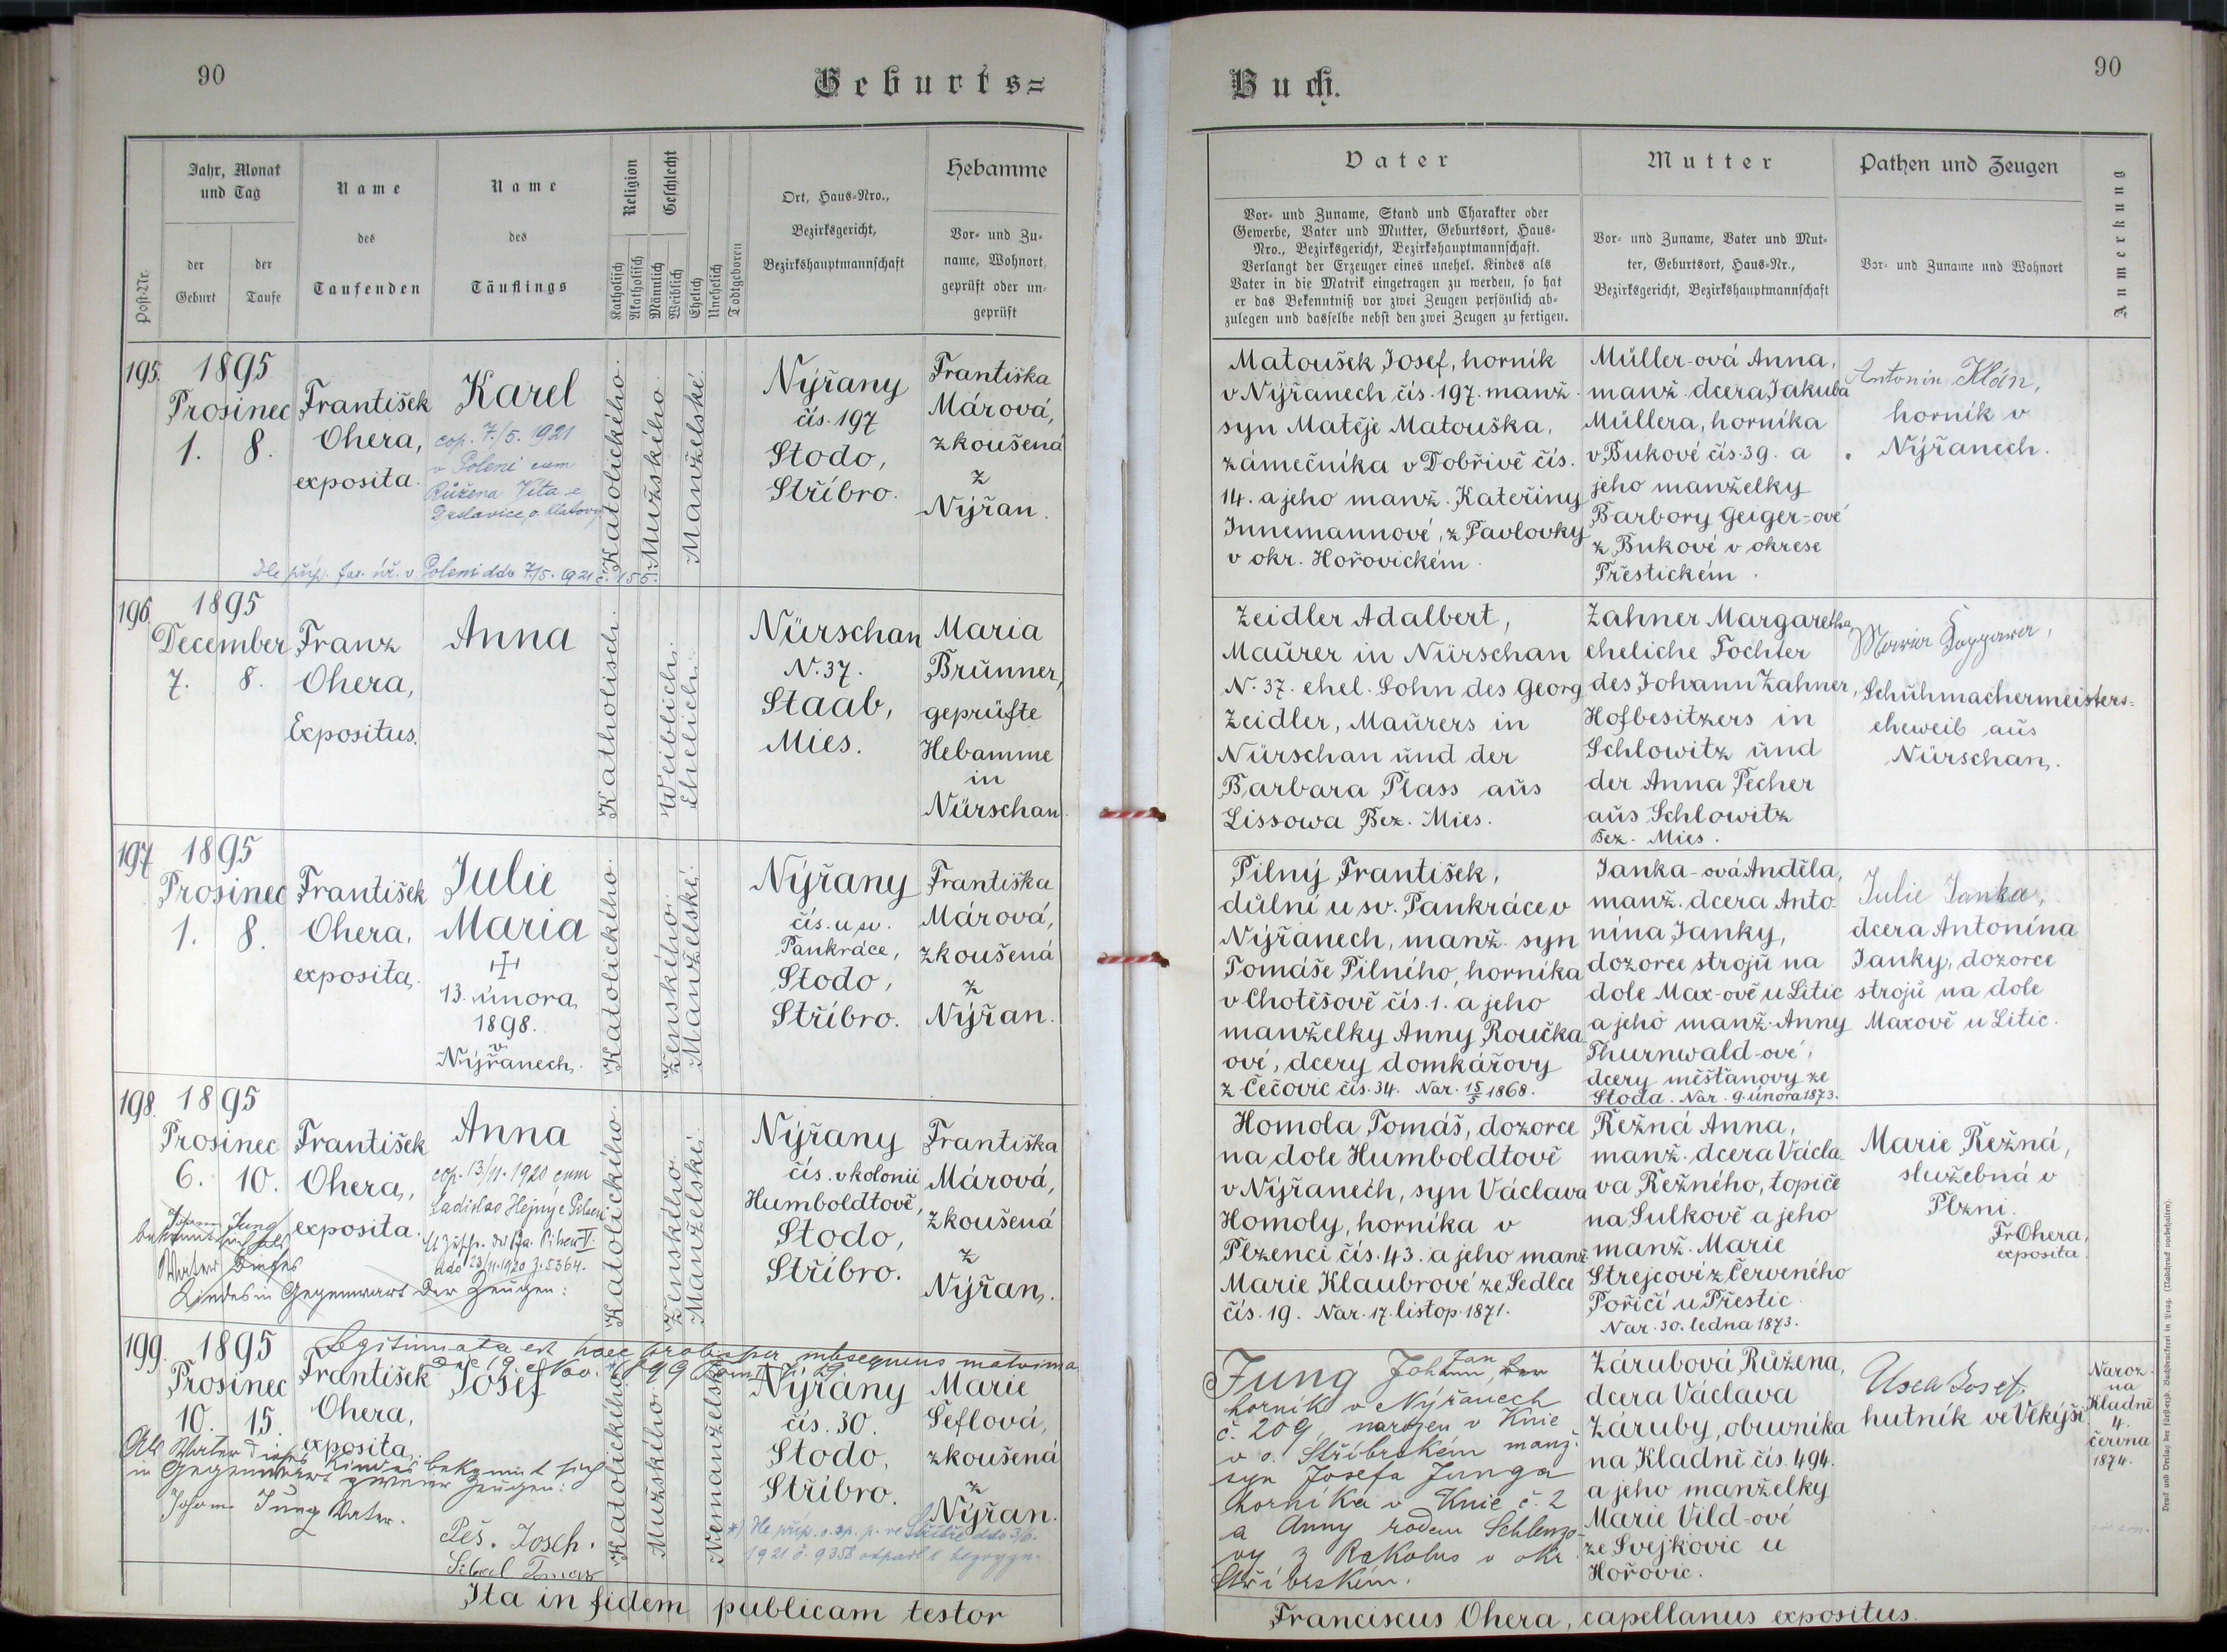 90
Geburts=
Post-Nr.
Jahr, Monat
und Tag
der
Geburt
der
Taufe
Name
des
Taufenden
Name
des
Täuflings
Religion
Katholisch
Akatholisch
Geschlecht
Männlich
Weiblich
Ehelich
Unehelich
Todtgeboren
Ort, Haus-Nro.,
Bezirksgericht,
Bezirkshauptmannschaft
Hebamme
Vor- und Zu-
name, Wohnort,
geprüft oder un-
geprüft
195.
1895
Prosinec
1. 8.
František
Ohera,
exposita.
Karel
cop. 7/5. 1921
v Poleni cum
Růžena Vita e
Dle příp. far. úř. v Poleni ddo 7/5. 1921 č. 155.
Katolického.
Mužského.
Manželské.
Nýřany
čís. 197
Stodo,
Stříbro.
Františka
Márová,
zkoušená
z
Nýřan.
196.
1895
December
7. 8.
Franz
Ohera,
Expositus.
Anna
Katholisch.
Weiblich.
Ehelich.
Nürschan
N. 37.
Staab,
Mies.
Maria
Brunner,
geprüfte
Hebamme
in
Nürschan.
197.
1895
Prosinec
1. 8.
František
Ohera,
exposita.
Julie
Maria
13. února
1898.
v
Nýřanech.
Katolického.
Ženského.
Manželské.
Nýřany
čís. u sv.
Pankráce,
Stodo,
Stříbro.
Františka
Márová,
zkoušená
z
Nýřan.
198.
1895
Prosinec
6. 10.
František
Ohera,
exposita.
Anna
cop. 13/11. 1920 cum
Ladislao Hejný e Pilsen
ddo 23/11. 1920 Z. 5364.
Johann Jung
bekennt sich als
Vater dieses
Kindes in Gegenwart der Zeugen:
Katolického.
Ženského.
Manželské.
Nýřany
čís. v kolonii
Humboldtově,
Stodo,
Stříbro.
Františka
Márová,
zkoušená
z
Nýřan.
199.
Legitimata est haec proles per subsequens matrimo
1895
Prosinec
10. 15.
František
Ohera,
exposita.
Josef
Als Vater dieses Kindes bekennt sich
in Gegenwart zweier Zeugen:
Johann Jung Vater.
Peš. Josef.
Katolického.
Mužského.
Nemanželské.
Nýřany
čís. 30.
Stodo,
Stříbro.
Marie
Šeflová,
zkoušená
z
Nýřan.
Ita in fidem publicam testor
90
Buch.
Vater
Vor- und Zuname, Stand und Charakter oder
Gewerbe, Vater und Mutter, Geburtsort, Haus-
Nro., Bezirksgericht, Bezirkshauptmannschaft.
Verlangt der Erzeuger eines unehel. Kindes als
Vater in die Matrik eingetragen zu werden, so hat
er das Bekenntniß vor zwei Zeugen persönlich ab-
zulegen und dasselbe nebst den zwei Zeugen zu fertigen.
Mutter
Vor- und Zuname, Vater und Mut-
ter, Geburtsort, Haus-Nr.,
Bezirksgericht, Bezirkshauptmannschaft
Pathen und Zeugen
Vor- und Zuname und Wohnort
Anmerkung
Matoušek Josef, horník
v Nýřanech čís. 197. manž.
syn Matěje Matouška,
zámečníka v Dobřívě čís.
14. a jeho manž. Kateřiny
Innemannové, z Pavlovky
v okr. Hořovickém.
Müller-ová Anna,
manž. dcera Jakuba
Müllera, horníka
v Bukové čís. 39. a
jeho manželky
Barbory Geiger-ové
z Bukové v okrese
Přestickém.
Antonín Klán,
horník v
Nýřanech.
Zeidler Adalbert,
Maurer in Nürschan
N. 37. ehel. Sohn des Georg
Zeidler, Maurers in
Nürschan und der
Barbara Plass aus
Lissowa Bez. Mies.
Zahner Margaretha
eheliche Tochter
des Johann Zahner,
Hofbesitzers in
Schlowitz und
der Anna Pecher
aus Schlowitz
Bez. Mies.
Maria
Schuhmachermeisters-
eheweib aus
Nürschan.
Pilný František,
důlní u sv. Pankráce v
Nýřanech, manž. syn
Tomáše Pilného, horníka
v Chotěšově čís. 1. a jeho
manželky Anny Roučka-
ové, dcery domkářovy
z Čečovic čís. 34. Nar. 15/5 1868.
Janka-ová Anděla,
manž. dcera Anto-
nína Janky,
dozorce strojů na
dole Max-ově u Litic
a jeho manž. Anny
Thurnwald-ové,
dcery měšťanovy ze
Stoda. Nar. 9. února 1873.
Julie Janka,
dcera Antonína
Janky, dozorce
strojů na dole
Maxově u Litic.
Homola Tomáš, dozorce
na dole Humboldtově
v Nýřanech, syn Václava
Homoly, horníka v
Plzenci čís. 43. a jeho manž.
Marie Klaubrové ze Sedlce
čís. 19. Nar. 17. listop. 1871.
Řežná Anna,
manž. dcera Václa-
va Řežného, topiče
na Sulkově a jeho
manž. Marie
Strejcové z Červeného
Poříčí u Přestic.
Nar. 30. ledna 1873.
Marie Řežná,
služebná v
Plzni.
Fr Ohera,
exposita.
Jung Johann, Jan
horník v Nýřanech
č. 209, narozen v Knie
v o. Stříbrském manž.
syn Josefa Junga
horníka v Knie č. 2
a Anny rodem Schlenzo-
vy z Rakolus v okr.
Stříbrském.
Zárubová Růžena,
dcera Václava
Záruby, obuvníka
na Kladně čís. 494.
a jeho manželky
Marie Vild-ové
ze Svejkovic u
Hořovic.
Usch Josef,
hutník ve Vekýši
Naroz.
na
Kladně
4.
června
1874.
Franciscus Ohera, capellanus expositus.
Druck und Verlag der fürst-erzb. Buchdruckerei in Prag. (Nachdruck vorbehalten).